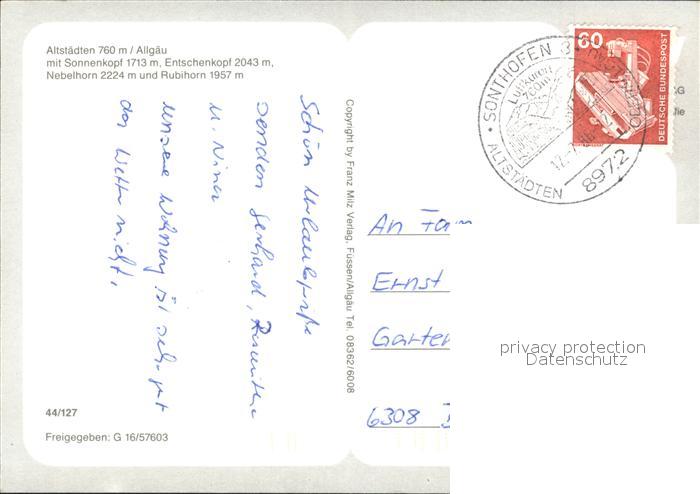 Altstädten 760 m / Allgäu
mit Sonnenkopf 1713 m, Entschenkopf 2043 m,
Nebelhorn 2224 m und Rubihorn 1957 m
Schön Urlaubsgrüße
senden Gerhard,
u.
Unsere Wohnung ist sehr gut
das Wetter nicht.
44/127
Freigegeben: G 16/57603
Copyright by Franz Milz Verlag, Füssen/Allgäu Tel. 08362/6008
SONTHOFEN 3
ALTSTÄDTEN
8972
Luftkurort
60
DEUTSCHE BUNDESPOST
An Fam
Ernst
Garten
6308
privacy protection
Datenschutz